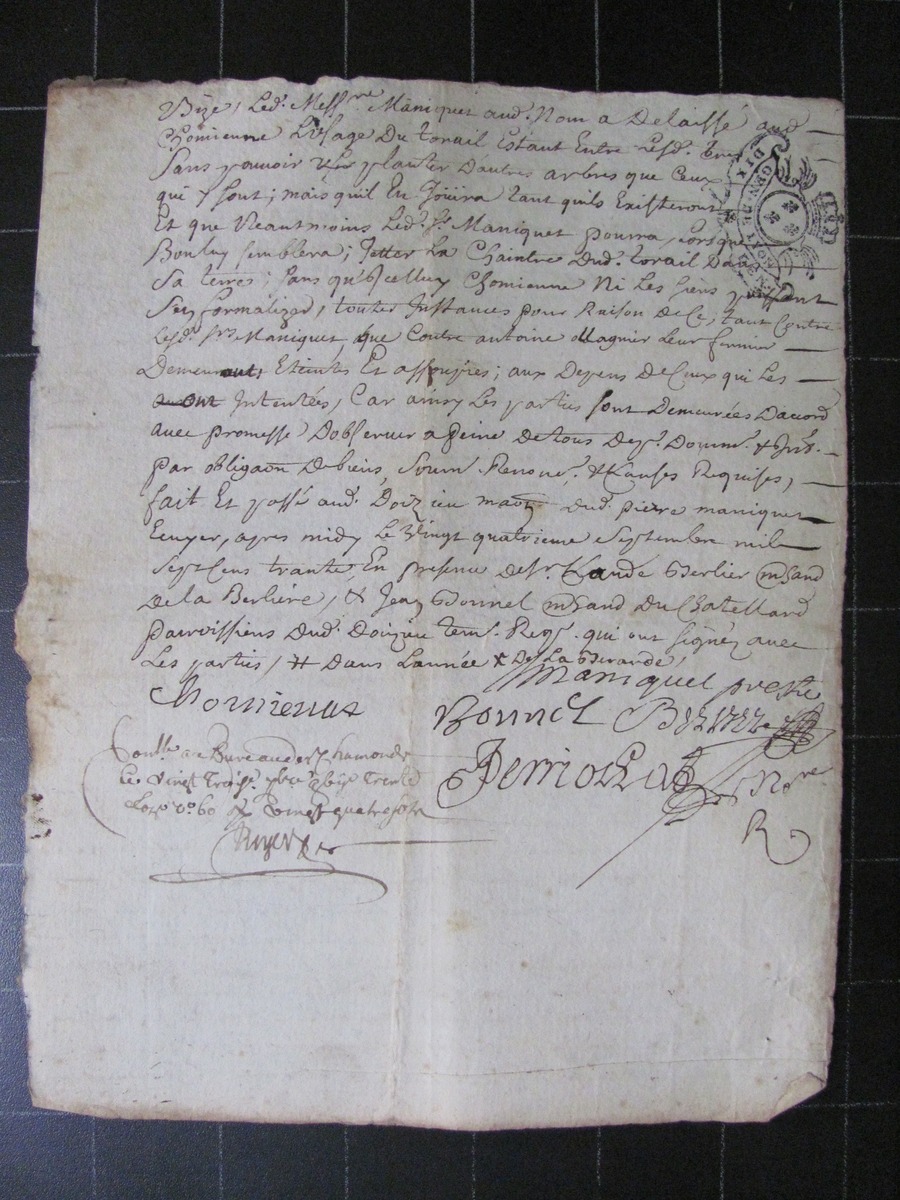 Bize, Led. Mess.re Maniquet aud. Nom a Delaissé aud
Chomienne L'usage Du torail Estant Entre lesd. terres
Sans pouvoir y planter D'autres arbres que Ceux
qui y sont; mais quil En Joüira tant quils Existeront
Et que Neantmoins Led. Sr. Maniquet pourra, Lorsque
Bon luy semblera; Jetter La Chaintre Dud. torail Dans
Sa terre; sans qu'Icelluy Chomienne Ni Les siens puissent
s'en formalizer, toutes Instances pour Raison De Ce, tant Contre
Lesd. Srs. Maniquet, que Contre antoine ollagnier Leur fermier
Demeurants Eteintes Et assoupies; aux Depens De Ceux qui Les
ont Intentées, Car ainsy Les parties sont Demeurées D'accord
avec promesse D'observer a peine De tous Dep. Domm. & Int.
par obligaon De biens, Soum. Renonc. & Clauses Requises,
fait Et passé aud. Doizieu maison Dud. pierre maniquet
Ecuyer, apres midy Le Vingt quatrieme Septembre mil
Sept Cens trante, En presence De Sr. Claude Berlier mchand
De la Berliere, & Jean Bonnel mchand Du Chatellard
parroissiens Dud. Doizieu tem. Req. qui ont signéz avec
Les parties, # Dans L'année & De La Girande,
Chomienne
Maniquet prestre
Bonnel Berlier
Perriollat Nore
R
Contlle au Bureau de St. Chamond
Le Vingt
fo. 60 Vingt quatre sols
DIX
GEN. DE LYON